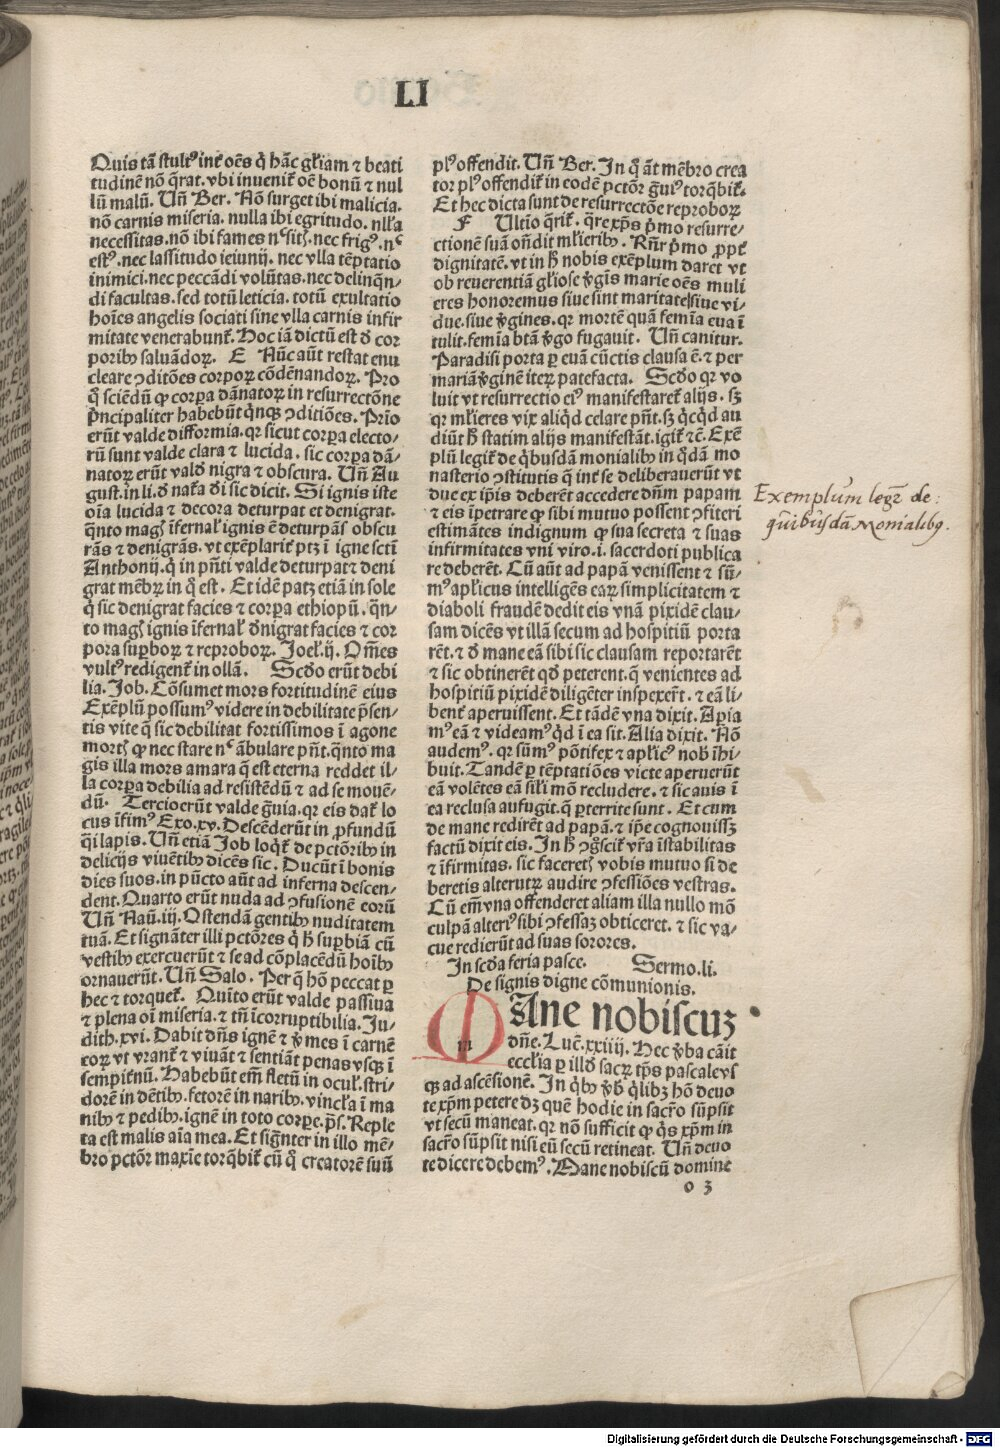 LI
Quis tā stult⁹ int̄ oēs q̇ hāc gl̄iam ⁊ beati
tudinē nō q̄rat. vbi invenit̄ oē bonū ⁊ nul
lū malū. Un̄ Ber. Nō surget ibi malicia.
nō carnis miseria. nulla ibi egritudo. nll̄a
necessitas. nō ibi fames nᶜ sitꝭ. nec frig⁹. nᶜ
est⁹. nec lassitudo ieiunij. nec vlla tēptatio
inimici. nec peccādi volūtas. nec delinqn̄⸗
di facultas. sed totū leticia. totū exultatio
hoīes angelis sociati sine vlla carnis infir
mitate venerabunt̄. Hoc iā dictū est đ cor
poribꝰ saluādoꝝ. E Nūc aūt restat enu
cleare ꝯditōes corpoꝝ cōdēnandoꝝ. Pro
q̇ sciēdū ꝙ corpa dānatoꝝ in resurrectōne
pncipaliter habebūt qnqꝫ ꝯditiōes. Prīo
erūt valde difformia. qꝛ sicut corpa electo⸗
rū sunt valde clara ⁊ lucida. sic corpa dā⸗
natoꝝ erūt vald̄ nigra ⁊ obscura. Un̄ Au
gust. in li. đ nat̄a đi sic dicit. Si ignis iste
oīa lucida ⁊ decora deturpat et denigrat.
qn̄to magꝭ īfernal̄ ignis ē deturpās obscu
rās ⁊ denigrās. vt exēplarit̄ ptꝫ ī igne sctī
Anthonij. q̇ in pn̄ti valde deturpat ⁊ deni
grat mēbꝝ in q̇ est. Et idē patꝫ etiā in sole
q̇ sic denigrat facies ⁊ corpa ethiopū. qn̄⸗
to magꝭ ignis īfernal̄ đnigrat facies ⁊ cor
pora supboꝝ ⁊ reproboꝝ. Joel̄. ij. Om̄es
vult⁹ redigent̄ in ollā. Scđo erūt debi
lia. Job. Cōsumet mors fortitudinē eius
Exēplū possum⁹ videre in debilitate p̄sen⸗
tis vite q̄ sic debilitat fortissimos ī agone
mortꝭ ꝙ nec stare nᶜ ābulare pn̄t. qn̄to ma
gis illa mors amara q̄ est eterna reddet il⸗
la corpa debilia ad resistēdū ⁊ ad se mouē⸗
dū. Tercio erūt valde gͣuia. qꝛ eis dat̄ lo
cus īfim⁹ Exo. xv. Descēderūt in ꝓfundū
q̄i lapis. Un̄ etiā Job loqt̄ de pctōribꝰ in
delicijs viuētibꝰ dicēs sic. Ducūt ī bonis
dies suos. in pūcto aūt ad inferna descen⸗
dent. Quarto erūt nuda ad ꝯfusionē eorū
Un̄ Naū. iij. Ostendā gentibꝰ nuditatem
tuā. Et signāter illi pctōres q̇ h̄ supbiā cū
vestibꝰ exercuerūt ⁊ se ad cōplacēdū hoībꝰ
ornauerūt. Un̄ Salo. Per q̄ hō peccat p
hec ⁊ torquet̄. Quīto erūt valde passiua
⁊ plena oī miseria. ⁊ tn̄ īcorruptibilia. Ju⸗
dith. xvi. Dabit dn̄s ignē ⁊ v̄mes ī carnē
eoꝝ vt vrant̄ ⁊ viuāt ⁊ sentiāt penas vsqꝫ ī
sempitnū. Habebūt em̄ fletū in ocul̄. stri⸗
dorē in dētibꝰ. fetorē in naribꝰ. vincl̄a ī ma
nibꝰ ⁊ pedibꝰ. ignē in toto corpe. ps̄. Reple
ta est malis aīa mea. Et sign̄ter in illo mē⸗
bro pctōr maxīe torqbit̄ cū q̇ creatorē suū
pl⁹ offendit. Un̄ Ber. In q̇ āt mēbro crea
tor pl⁹ offendit̄ in eodē pctōr gͣui⁹ torqbit̄.
Et hec dicta sunt de resurrectōe reproboꝝ
F Ultīo qrit̄. qre xp̄s pͥmo resurre⸗
ctionē suā on̄dit ml̄ieribꝰ. Rn̄r pͥmo ꝓpt̄
dignitatē. vt in h̄ nobis exēplum daret vt
ob reuerentiā gl̄iose v̄gīs marie oēs muli
eres honoremus siue sint maritate siue vi⸗
due. siue v̄gines. qꝛ mortē quā femīa eua ī
tulit. femīa btā v̄go fugauit. Un̄ canitur.
Paradisi porta p euā cūctis clausa ē. ⁊ per
mariā v̄ginē iteꝝ patefacta. Scđo qꝛ vo
luit vt resurrectio ei⁹ manifestaret̄ alijs. sꝫ
qꝛ ml̄ieres vix aliqd celare pn̄t. sꝫ qcqd au
diūt h̄ statim alijs manifestāt. igit̄ ⁊c̄. Exē
plū legit̄ de qbusdā monialibꝰ in qdā mo
nasterio ꝯstitutis q̄ int̄ se deliberauerūt vt
due ex ip̄is deberēt accedere dn̄m papam
⁊ eis īpetrare ꝙ sibi mutuo possent ꝯfiteri
estimātes indignum ꝙ sua secreta ⁊ suas
infirmitates vni viro. i. sacerdoti publica
re deberēt. Cū aūt ad papā venissent ⁊ sū⸗
m⁹ apl̄icus intelligēs eaꝝ simplicitatem ⁊
diaboli fraudē dedit eis vnā pixidē clau⸗
sam dicēs vt illā secum ad hospitiū porta
rēt. ⁊ đ mane eā sibi sic clausam reportarēt
⁊ sic obtinerēt qđ peterent. q̄ venientes ad
hospitiū pixidē diligēter inspexert̄. ⁊ eā li⸗
bent̄ aperuissent. Et tādē vna dixit. Apia
m⁹ eā ⁊ videam⁹ qd ī ea sit. Alia dixit. Nō
audem⁹. qꝛ sūm⁹ pōtifex ⁊ apl̄ic⁹ nob̄ īhi⸗
buit. Tandē p tēptatiōes victe aperuerūt
eā volētes eā sil̄i mō recludere. ⁊ sic auis ī
ea reclusa aufugit. q̄ pterrite sunt. Et cum
de mane redirēt ad papā. ⁊ ip̄e cognouissꝫ
factū dixit eis. In h̄ ꝯgͦscit̄ vr̄a īstabilitas
⁊ īfirmitas. sic faceretꝭ vobis mutuo si de
beretis alterutꝝ audire ꝯfessiōes vestras.
Cū em̄ vna offenderet aliam illa nullo mō
culpā alteri⁹ sibi ꝯfessaꝫ obticeret. ⁊ sic va⸗
cue redierūt ad suas sorores.
In scđa feria pasce. Sermo. li.
De signis digne cōmunionis.
MAne nobiscuꝫ
dn̄e. Luē. xxiiij. Hec v̄ba cāit
eccl̄ia p illđ sacꝝ tp̄s pascale vs
qꝫ ad ascēsionē. In qbꝰ v̄b̄ qlibꝫ hō deuo
te xp̄m petere dꝫ quē hodie in sacr̄o sūpsit
vt secū maneat. qꝛ nō sufficit ꝙ qs xp̄m in
sacr̄o sūpsit nisi eū secū retineat. Un̄ deuo
te dicere debem⁹. Mane nobiscū domine
o 3
Exemplum legꝛ̄ de:
quibusdā Monialibꝰ.
Digitalisierung gefördert durch die Deutsche Forschungsgemeinschaft - DFG